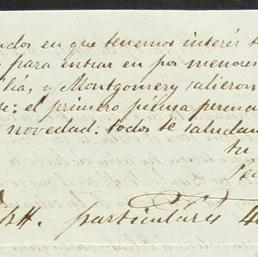 ados en que tenemos interés t
para entrar en por menores
lías, y Montgomery salieron
se: el primero piensa perma
novedad: todos te saludan
tu
particulars 4